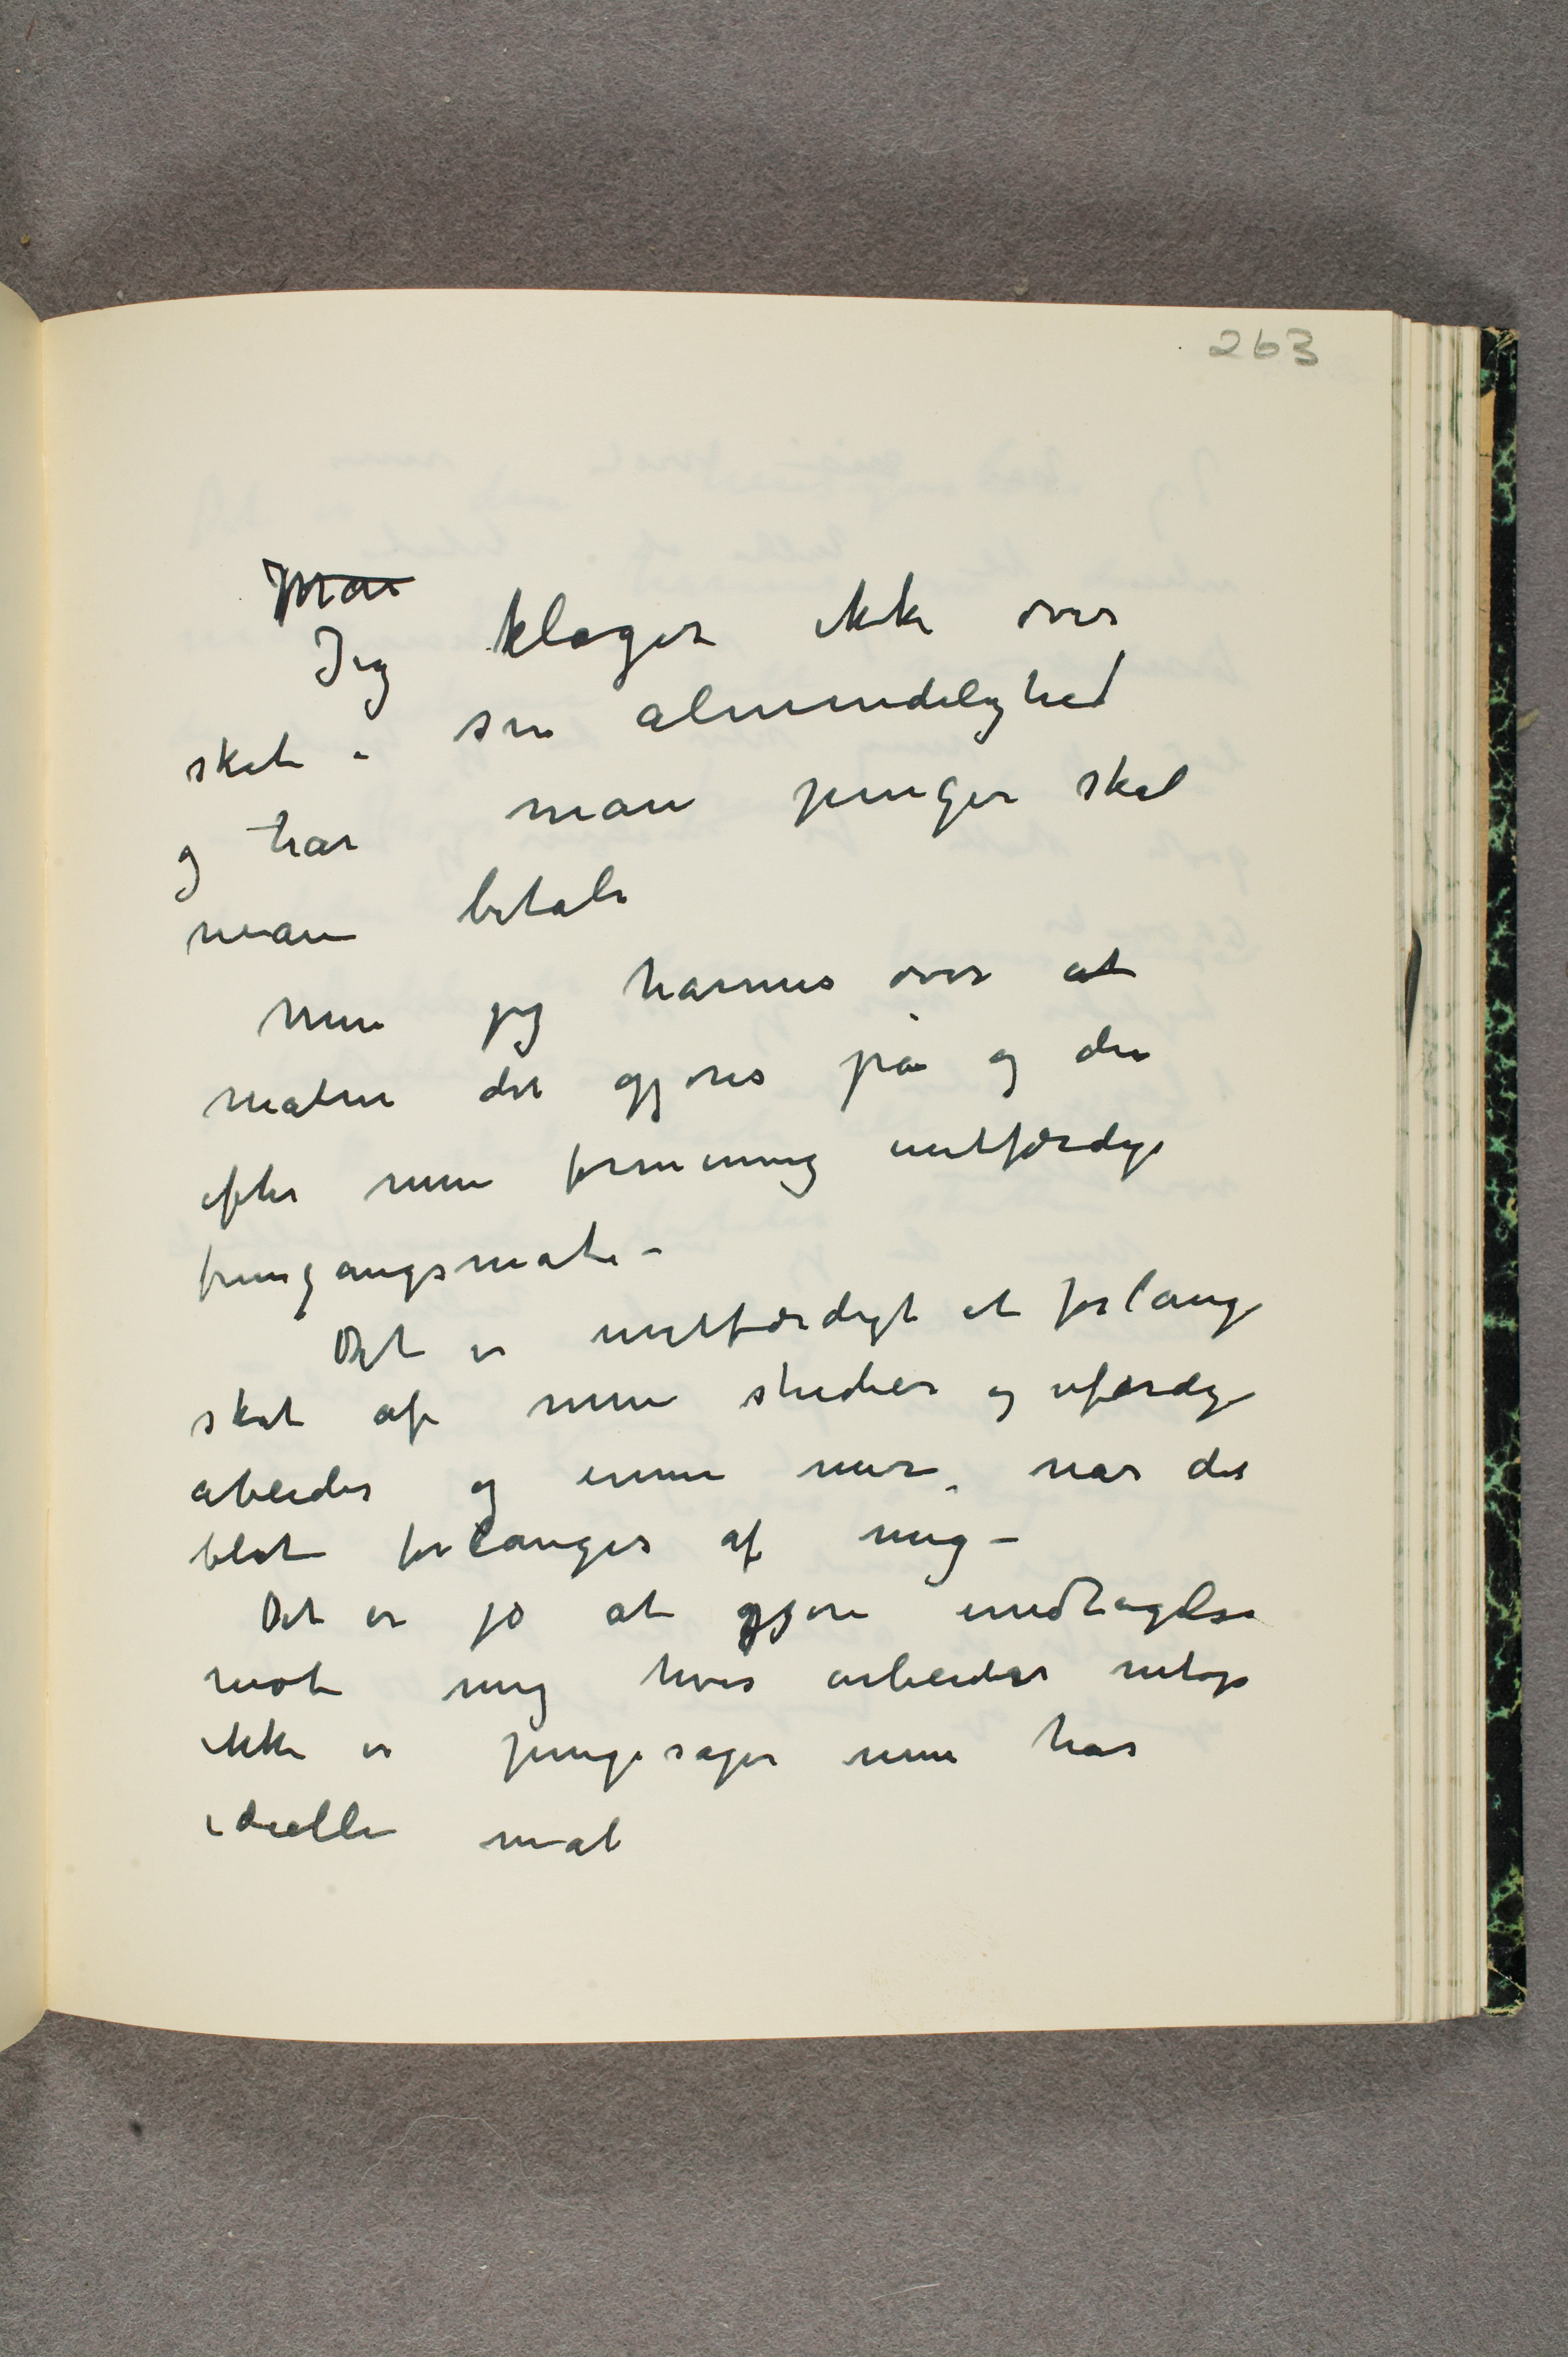 263
Man
Jeg klager ikke over
skat i sin almindelighed
og har man penger skal
man betale
Men jeg harmes over at
maten det gjøres på og den
efter min formening uretfærdige
fremgangsmåte –
Det er uretfærdigt at forlange
skat af mine studier og ufærdige
abeider og ennu mere når det
blot forlanges af mig –
Det er jo at gjøre undtagelse
mot mig hvis arbeider netop
ikke er pengesager men har
ideelle mål